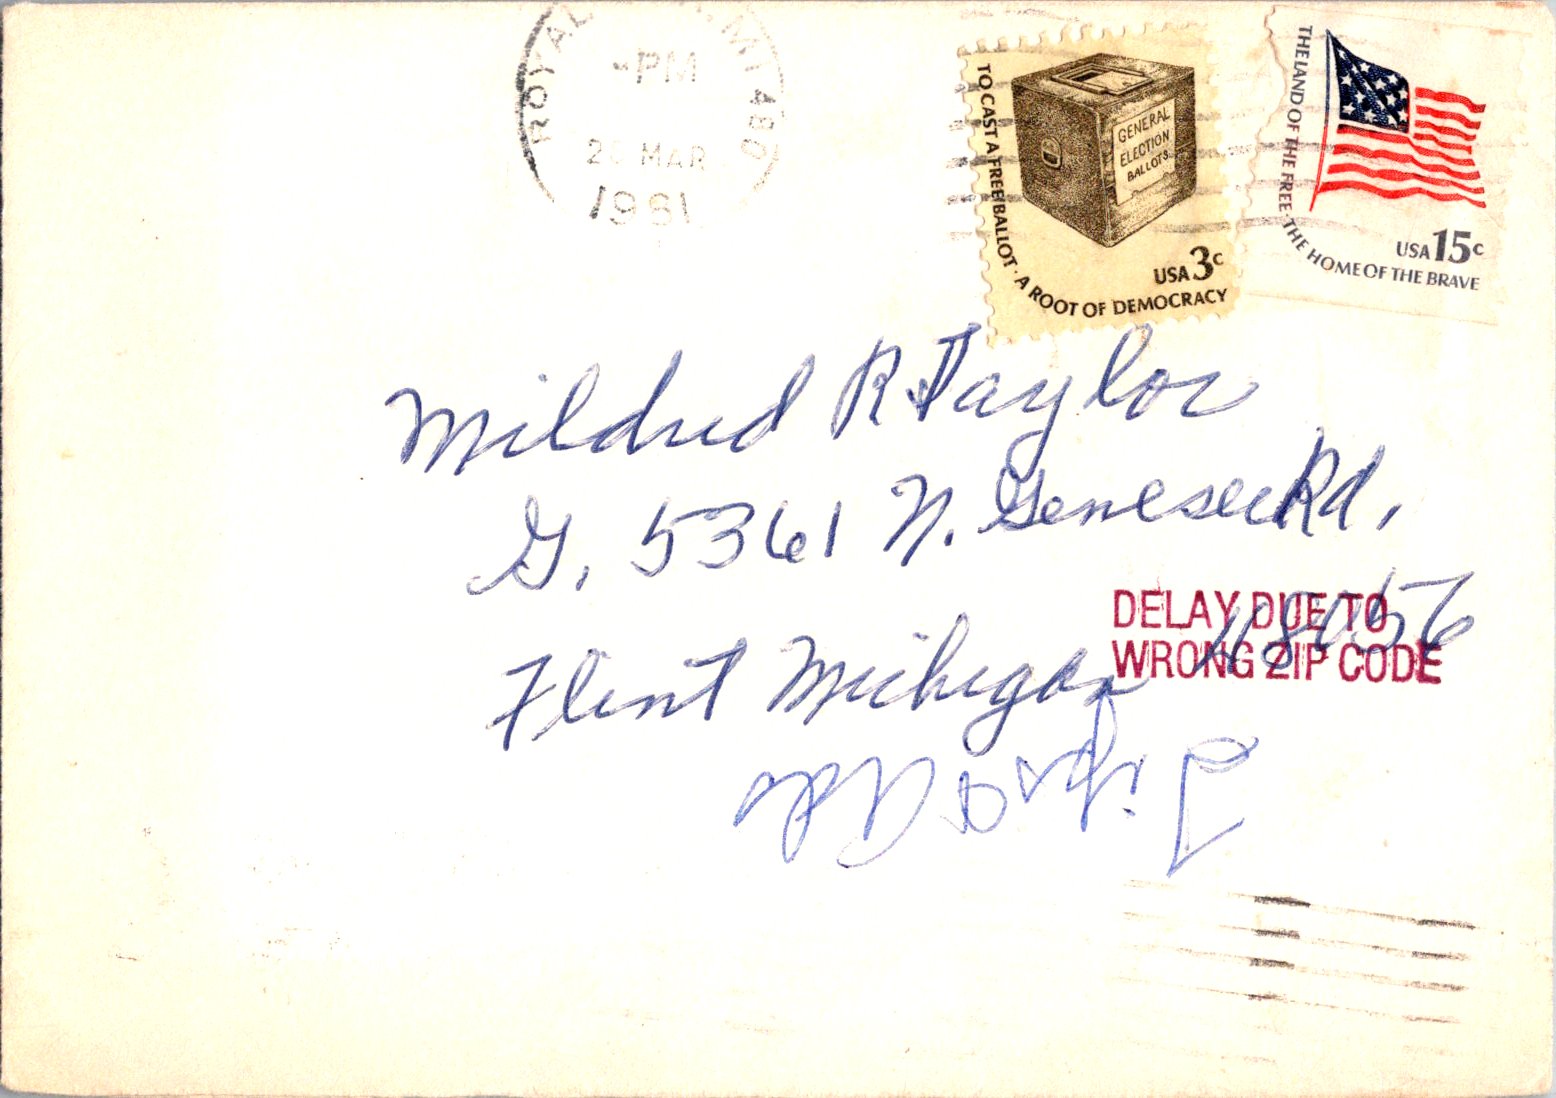 ROYAL MI 480
PM
MAR
1981
TO CAST A FREE BALLOT · A ROOT OF DEMOCRACY
GENERAL
ELECTION
BALLOTS
USA 3c
THE LAND OF THE FREE · THE HOME OF THE BRAVE
USA 15c
Mildred R Taylor
G. 5361 N. Genesee Rd,
Flint Michigan 48056
DELAY DUE TO
WRONG ZIP CODE